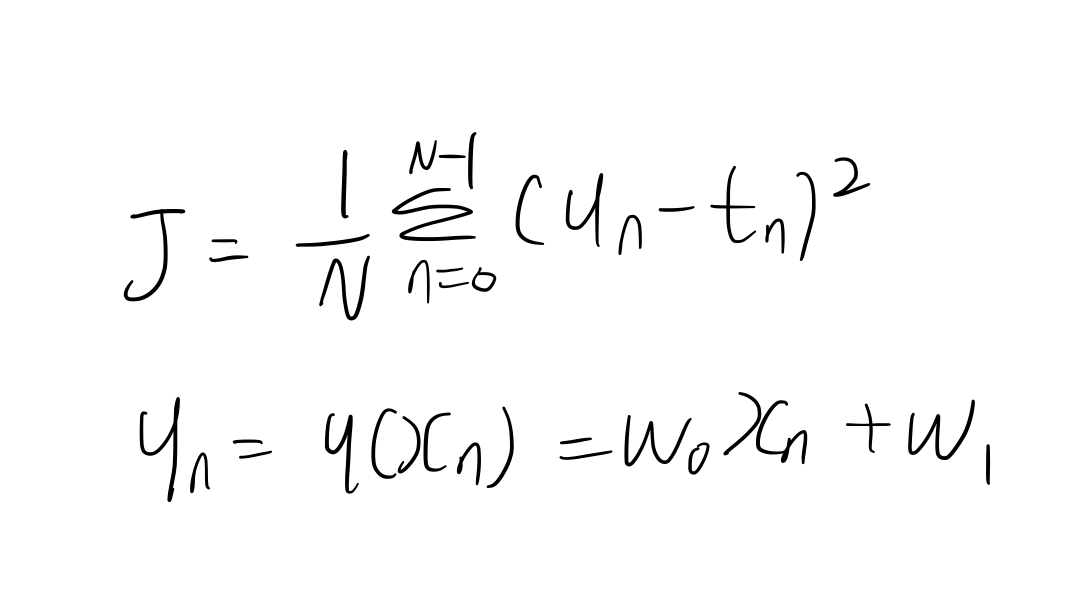 J = \frac{1}{N} \sum_{n=0}^{N-1} (y_n - t_n)^2
y_n = y(x_n) = w_0 x_n + w_1